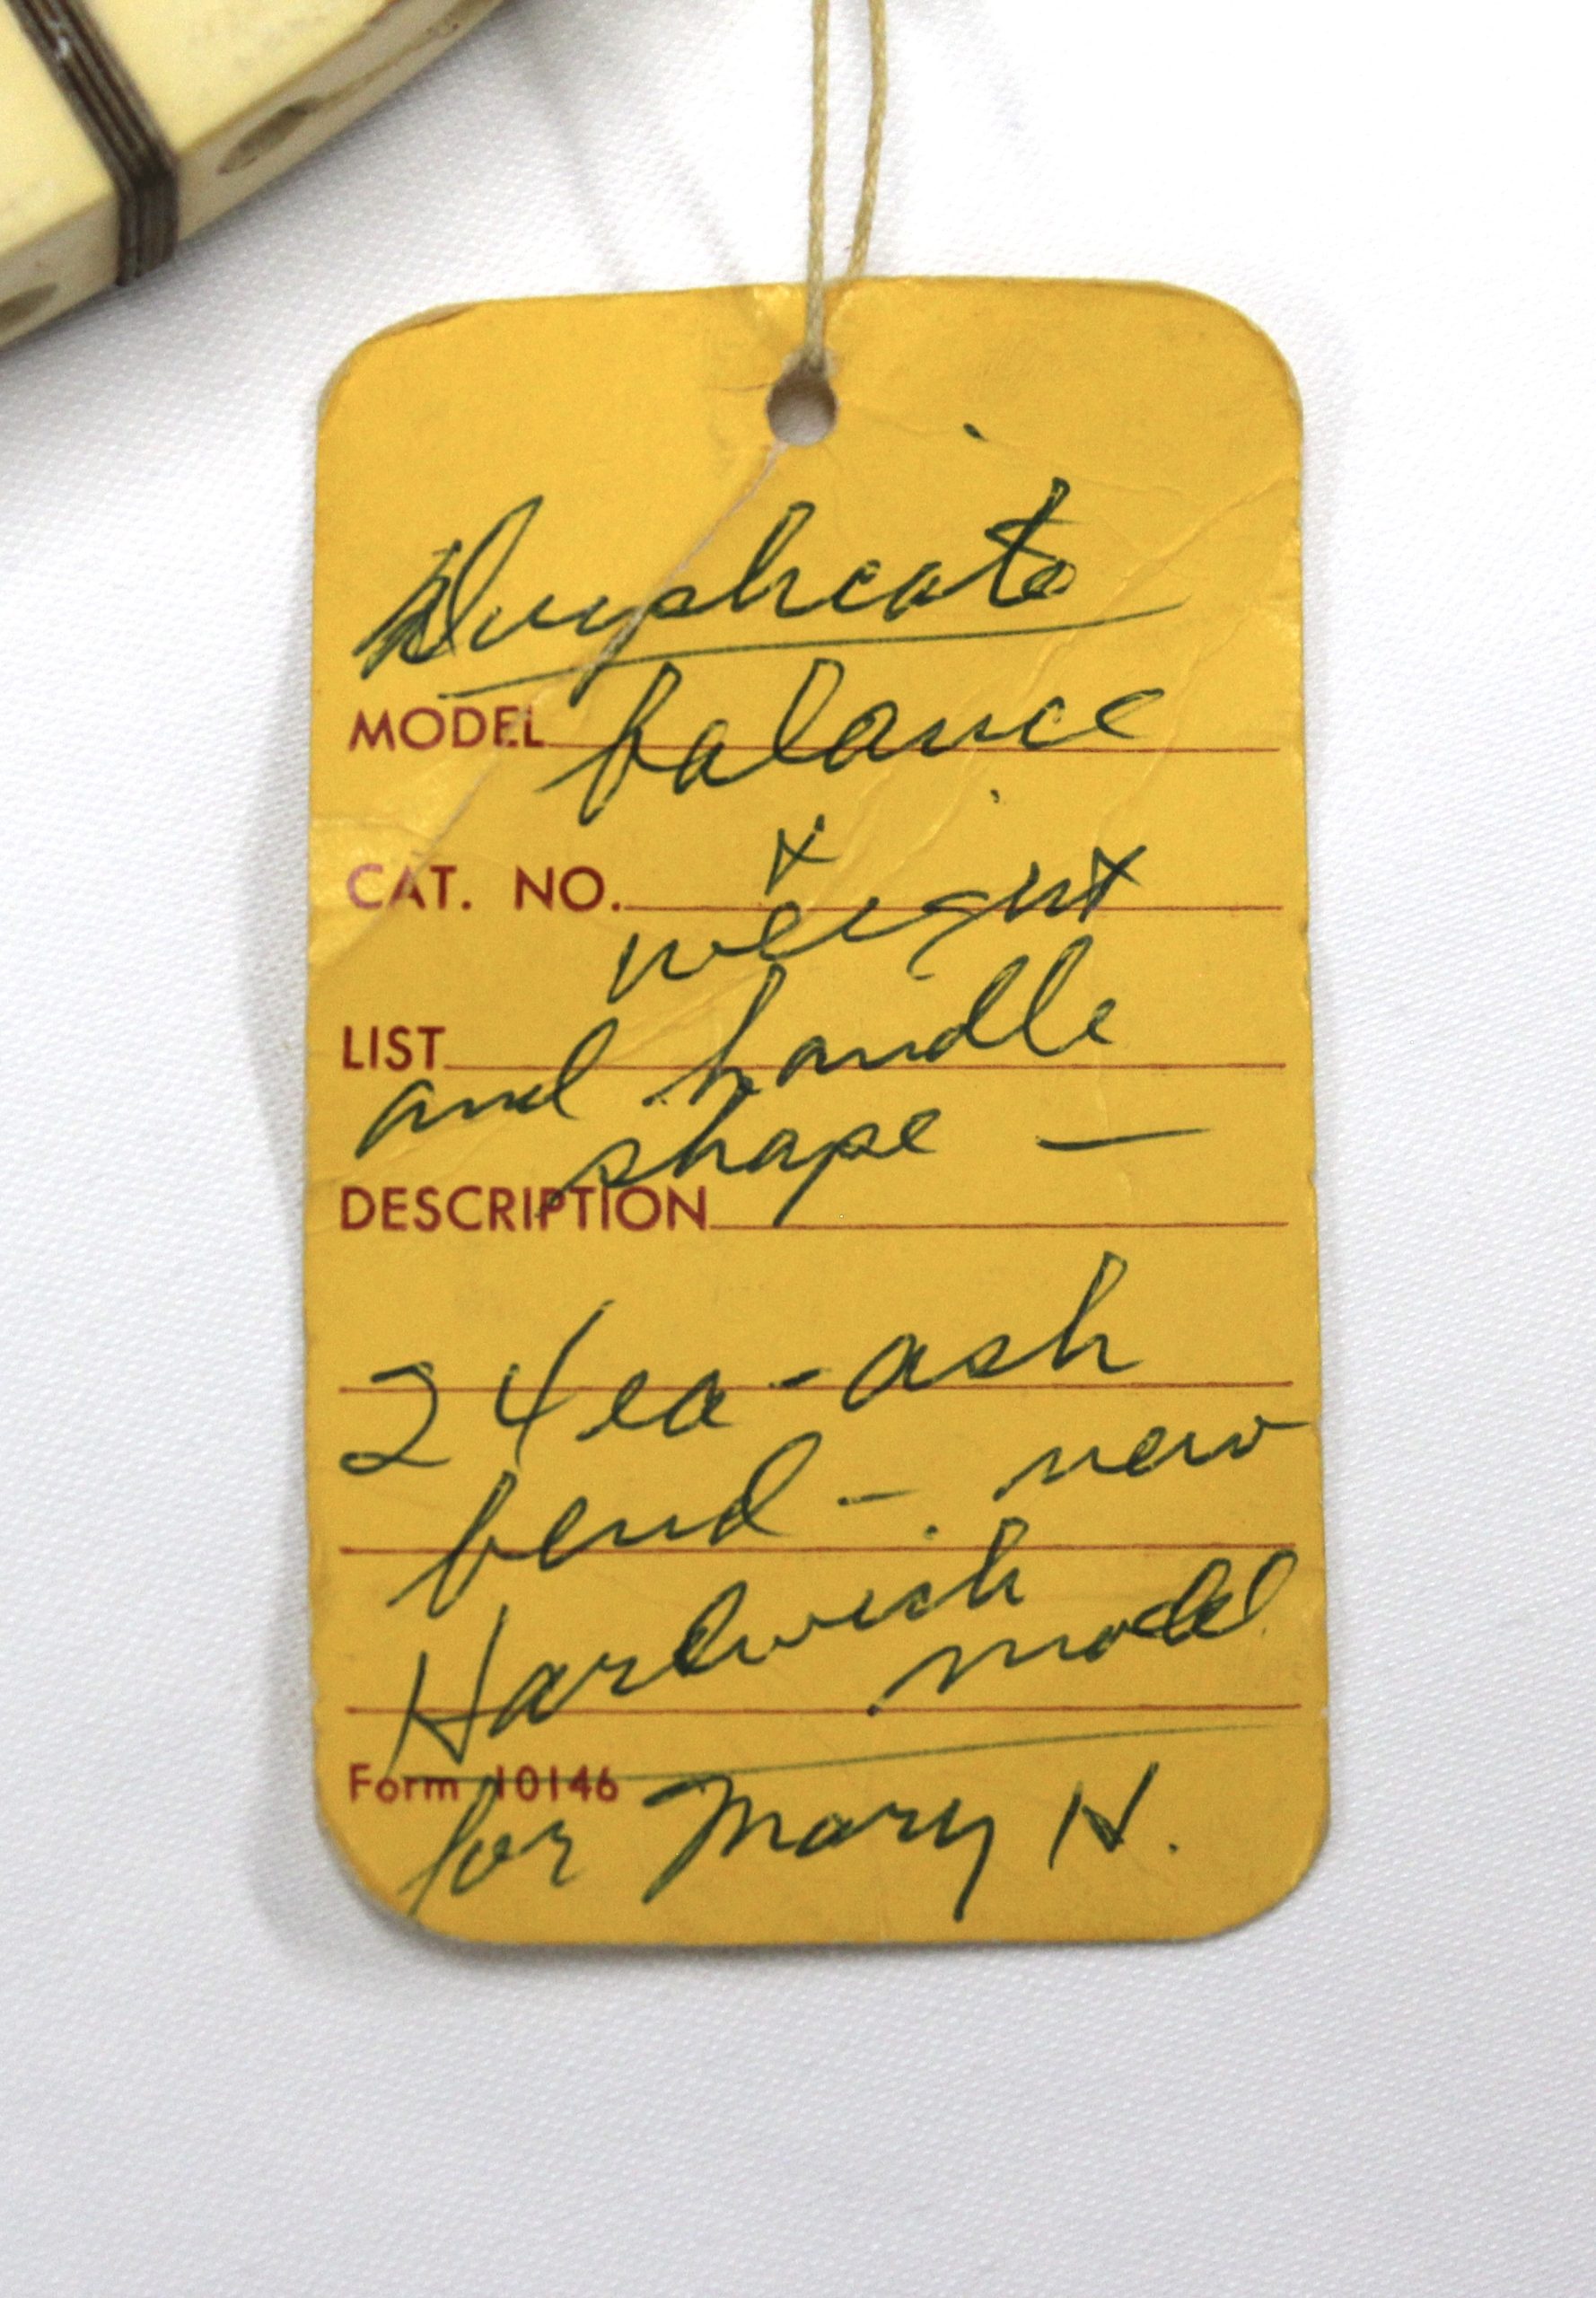 Duplicate
MODEL balance
CAT. NO. +
weight
LIST and handle
shape —
DESCRIPTION
24 ea - ash
bend - new
Hardwick
model
Form 10146
for Mary H.